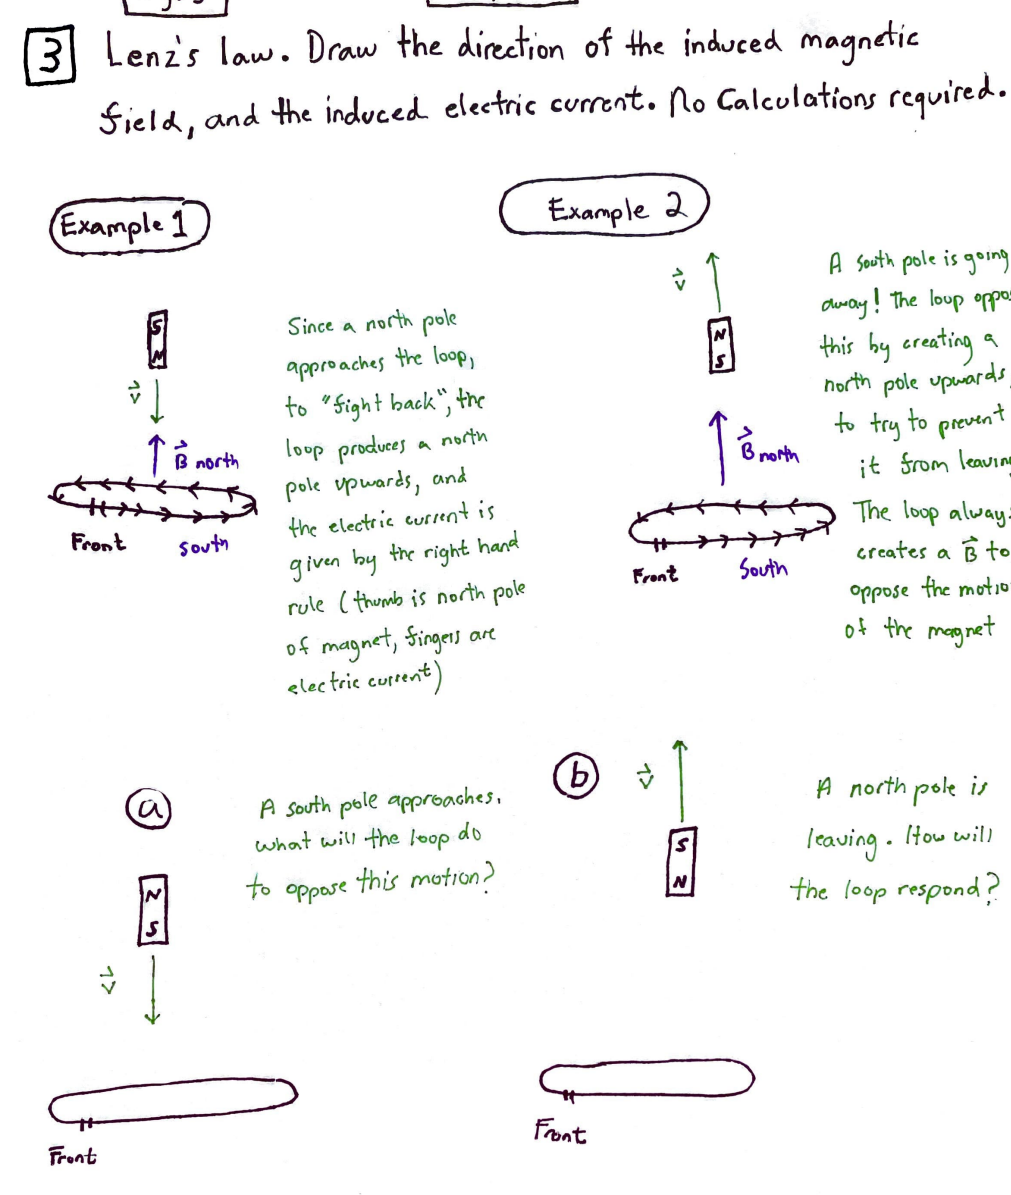 3 Lenz's law. Draw the direction of the induced magnetic
field, and the induced electric current. No Calculations required.
Example 1
S
N
v
B north
Front
South
Since a north pole
approaches the loop,
to "fight back", the
loop produces a north
pole upwards, and
the electric current is
given by the right hand
rule (thumb is north pole
of magnet, fingers are
electric current)
Example 2
v
N
S
B north
Front
South
A south pole is going
away! The loop oppos
this by creating a
north pole upwards,
to try to prevent
it from leaving
The loop always
creates a B to
oppose the motio
of the magnet
a
A south pole approaches,
what will the loop do
to oppose this motion?
N
S
v
Front
b
v
S
N
A north pole is
leaving. How will
the loop respond?
Front